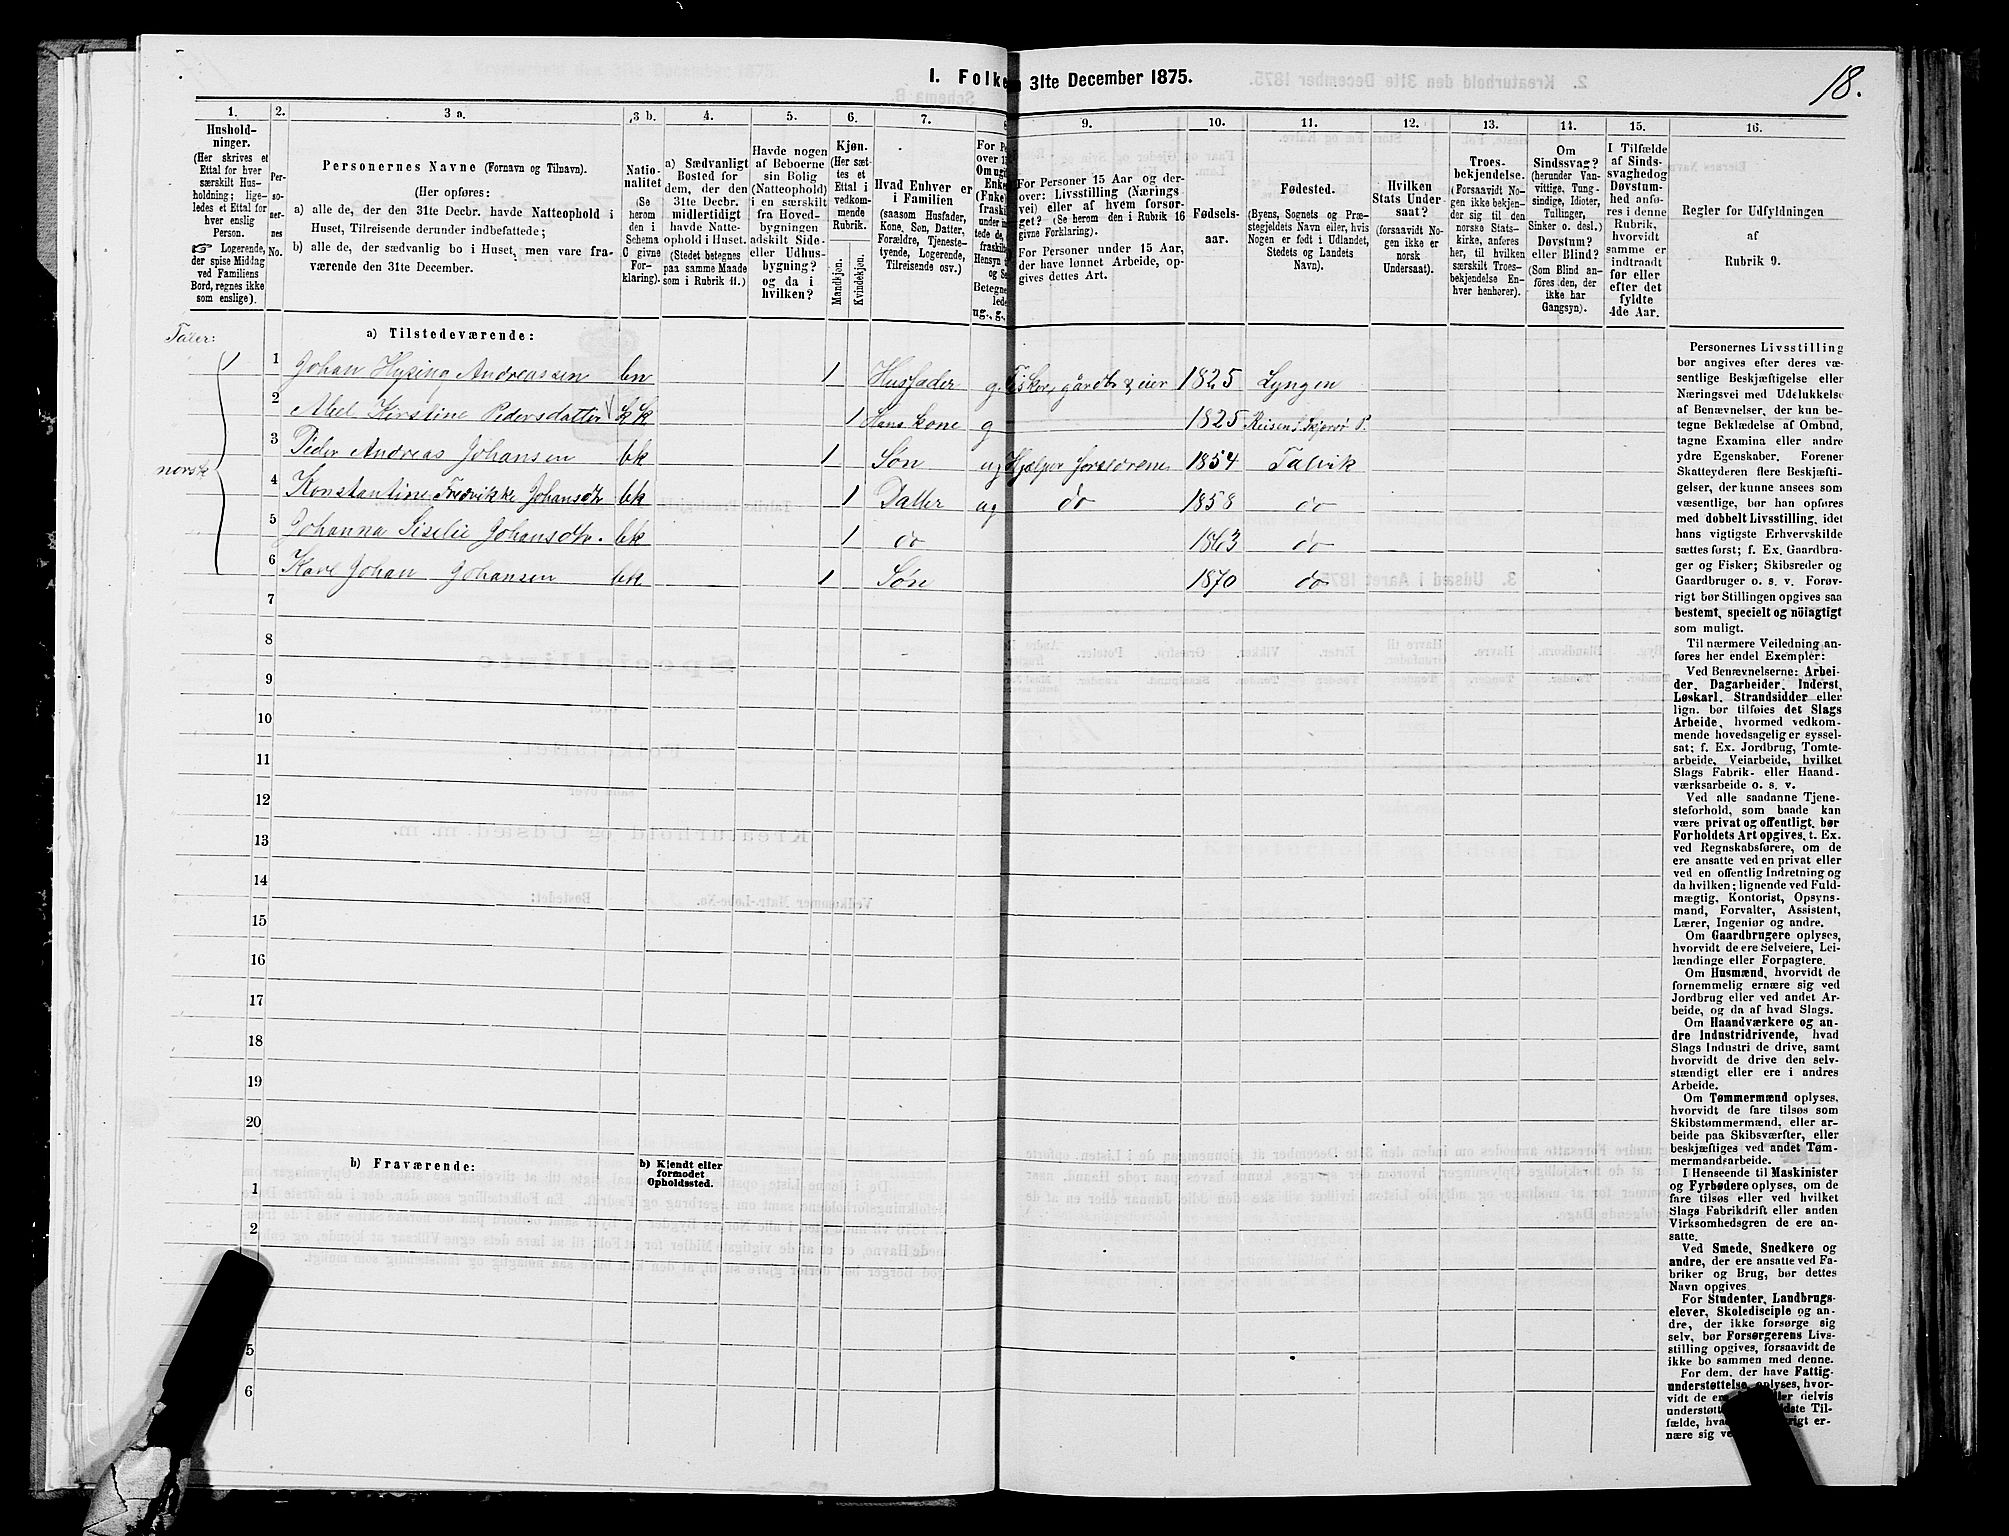 18.
I. Folke 31te December 1875.
1. 2. 3 a. 3 b. 4. 5. 6. 7. 8 9. 10. 11. 12. 13. 14. 15. 16.
Hushold-
ninger.
(Her skrives et
Ettal for hver
særskilt Hus-
holdning; lige-
ledes et Ettal for
hver enslig
Person.
☞ Logerende,
der spise Middag
ved Familiens
Bord, regnes ikke
som enslige).
Per-
so-
ner-
nes
No.
Personernes Navne (Fornavn og Tilnavn).
(Her opføres:
a) alle de, der den 31te Decbr. havde Natteophold i
Huset, Tilreisende derunder indbefattede;
b) alle de, der sædvanlig bo i Huset, men vare fra-
værende den 31te December.
Natio-
nalitet
(Se
herom
den i
Schema
C givne
For-
klaring).
a) Sædvanligt
Bosted for
dem, der den
31te Decbr.
midlertidigt
havde Natte-
ophold i Huset.
(Stedet betegnes
paa samme Maade
som i Rubrik 11.)
Havde nogen
af Beboerne
sin Bolig
(Natteophold)
i en særskilt
fra Hoved-
bygningen
adskilt Side-
eller Udhus-
bygning?
og da i
hvilken?
Kjøn.
(Her sæt-
tes et
Ettal i
vedkom-
mende
Rubrik.
Mandkjøn.
Kvindekjøn.
Hvad Enhver er
i Familien
(saasom Husfader,
Kone, Søn, Datter,
Forældre, Tjeneste-
tyende, Logerende,
Tilreisende osv.)
For P
over 1
Om ug
Enke
(Enke)
fraskil
under in
tede de,
fraskilt
Hensyn t
og S
Betegne
lede
ug., g.,
For Personer 15 Aar og der-
over: Livsstilling (Nærings-
vei) eller af hvem forsør-
get? (Se herom den i Rubrik 16
givne Forklaring).
For Personer under 15 Aar,
der have lønnet Arbeide, op-
gives dettes Art.
Fødsels-
aar.
Fødested.
(Byens, Sognets og Præ-
stegjeldets Navn eller, hvis
Nogen er født i Udlandet,
Stedets og Landets
Navn).
Hvilken
Stats Under-
saat?
(forsaavidt No-
gen ikke er
norsk
Undersaat).
Troes-
bekjendelse.
(Forsaavidt No-
gen ikke bekjen-
der sig til den
norske Stats-
kirke, anføres
her, til hvilken
særskilt Troes-
bekjendelse En-
hver henhører).
Om
Sindssvag?
(herunder Van-
vittige, Tung-
sindige, Idioter,
Tullinger,
Sinker o. desl.)
Døvstum?
eller Blind?
(Som Blind an-
føres den, der
ikke har
Gangsyn).
I Tilfælde
af Sinds-
svaghed og
Døvstum-
hed anfø-
res i denne
Rubrik,
hvorvidt
samme er
indtraadt
før eller
efter det
fyldte
4de Aar.
Regler for Udfyldningen
af
Rubrik 9.
Taler:
a) Tilstedeværende:
1 1 Johan Hysing Andreassen bn 1 Husfader g. Fisker, gårdbr & eier 1825 Lyngen
2 Abel Kirstine Pedersdatter kk 1 Hans kone g 1825 Reisen Skjervø P.
3 Peder Andreas Johansen bk 1 Søn ug Hjælper forældrene 1854 Talvik
norsk
4 Konstantine Fredrikke Johansdtr bk 1 Datter ug do 1858 do
5 Johanna Siselie Johansdtr. bk 1 do 1863 do
6 Karl Johan Johansen bk 1 Søn 1870 do
7
8
9
10
11
12
13
14
15
16
17
18
19
20
b) Fraværende:
b) Kjendt eller
formodet
Opholdssted.
1
2
5
6
Personernes Livsstilling
bør angives efter deres væ-
sentlige Beskjæftigelse eller
Næringsvei med Udelukkelse
af Benævnelser, der kun be-
tegne Beklædelse af Ombud,
tagne Examina eller andre
ydre Egenskaber. Forener
Skatteyderen flere Beskjæfti-
gelser, der kunne ansees som
væsentlige, bør han opføres
med dobbelt Livsstilling, idet
hans vigtigste Erhvervskilde
sættes først; f. Ex. Gaardbru-
ger og Fisker; Skibsreder og
Gaardbruger o. s. v. Forøv-
rigt bør Stillingen opgives saa
bestemt, specielt og nöiagtigt
som muligt.
Til nærmere Veiledning an-
føres her endel Exempler:
Ved Benævnelserne: Arbei-
der, Dagarbeider, Inderst,
Løskarl, Strandsidder eller
lign. bør tilføies det Slags
Arbeide, hvormed vedkom-
mende hovedsagelig er syssel-
sat; f. Ex. Jordbrug, Tomte-
arbeide, Veiarbeide, hvilket
Slags Fabrik- eller Haand-
værksarbeide o. s. v.
Ved alle saadanne Tjene-
steforhold, som baade kan
være privat og offentligt, bør
Forholdets Art opgives, t. Ex.
ved Regnskabsførere, om de
ere ansatte ved en privat eller
ved en offentlig Indretning og
da hvilken; lignende ved Fuld-
mægtig, Kontorist, Opsyns-
mand, Forvalter, Assistent,
Lærer, Ingeniør og andre.
Om Gaardbrugere oplyses,
hvorvidt de ere Selveiere, Lei-
lændinge eller Forpagtere.
Om Husmænd, hvorvidt de
fornemmelig ernære sig ved
Jordbrug eller ved andet Ar-
beide, og da af hvad Slags.
Om Haandværkere og an-
dre Industridrivende, hvad
Slags Industri de drive, samt
hvorvidt de drive den selv-
stændigt eller ere i andres
Arbeide.
Om Tømmermænd oplyses,
hvorvidt de fare tilsøs som
Skibstømmermænd, eller ar-
beide paa Skibsværfter, eller
beskjæftiges ved andet Tøm-
mermandsarbeide.
I Henseende til Maskinister
og Fyrbødere oplyses, om de
fare tilsøs eller ved hvilket
Slags Fabrikdrift eller anden
Virksomhedsgren de ere an-
satte.
Ved Smede, Snedkere og
andre, der ere ansatte ved Fa-
briker og Brug, bør dettes
Navn opgives
For Studenter, Landbrugs-
elever, Skoledisciple og an-
dre, der ikke forsørge sig
selv, bør Forsørgerens Livs-
stilling opgives, forsaavidt de
ikke bo sammen med denne.
For dem, der have Fattig-
understøttelse, oplyses, hvor-
vidt de er ller delvis
understøtt dste Til-
fælde, hva rigt er-
nære sig ve